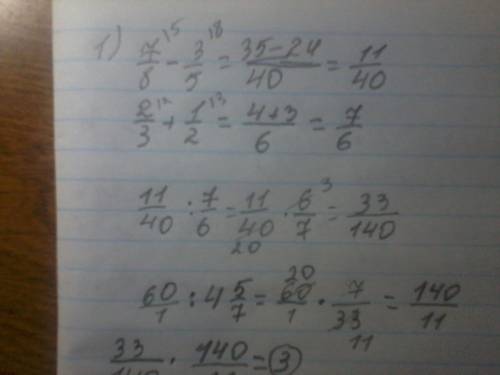 1) 7/8 |5 - 3/5 |8 = 35-24/40 = 11/40
2/3 |2 + 1/2 |3 = 4+3/6 = 7/6
11/40 : 7/6 = 11/40 20 · 6/7 3 = 33/140
60/1 : 4 5/7 = 20 60/1 · 7/33 11 = 140/11
33/140 · 140/11 = 3